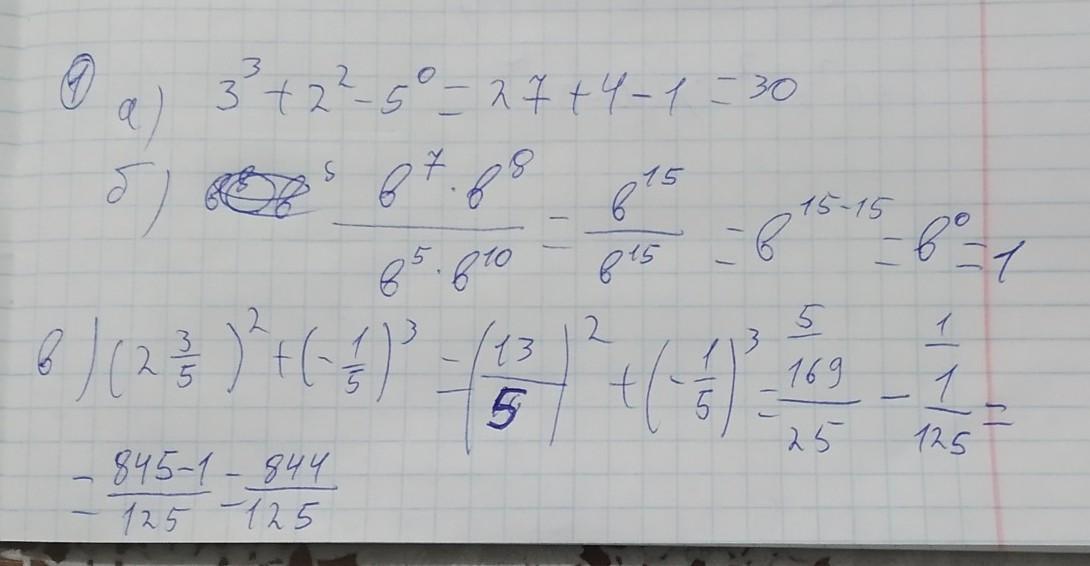 1 а) 3³ + 2² - 5⁰ = 27 + 4 - 1 = 30
б) (в⁷ · в⁸)/(в⁵ · в¹⁰) = в¹⁵/в¹⁵ = в¹⁵⁻¹⁵ = в⁰ = 1
в) (2 3/5)² + (-1/5)³ = (13/5)² + (-1/5)³ = 5/ 169/25 - 1/ 1/125 =
= (845-1)/125 = 844/125